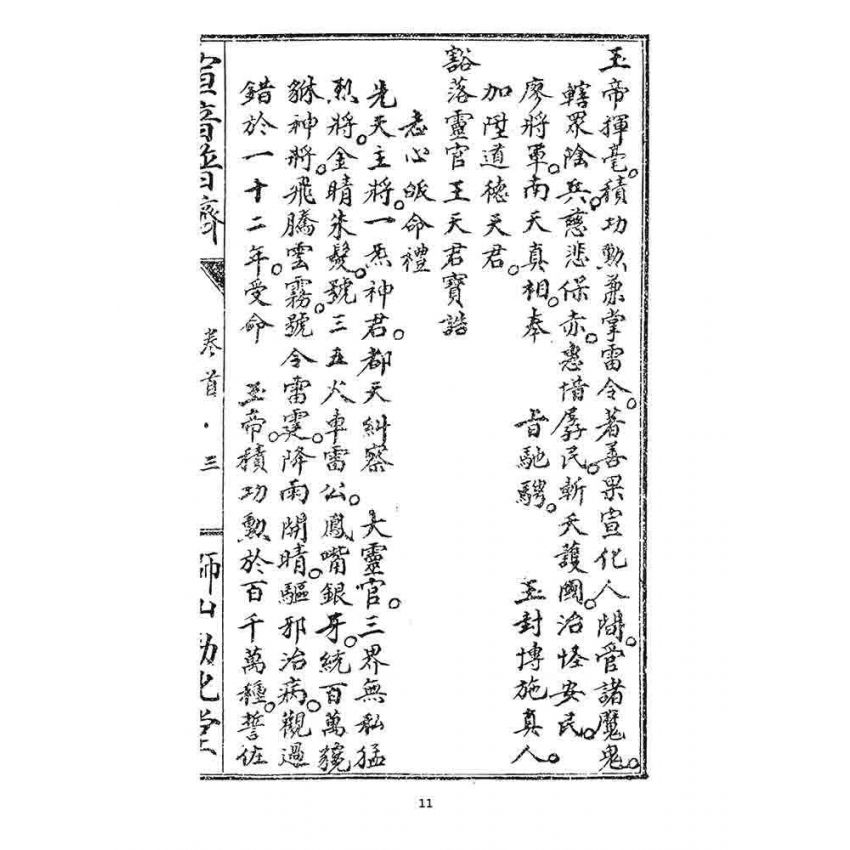 玉帝揮毫。積功勲兼掌雷令。著善果宣化人間。管諸魔鬼。
轄眾陰兵。慈悲保赤。惠惜孱民。斬夭護國。治怪安民。
廖將軍。南天真相。奉　旨馳騁。　玉封博施真人。
加陞道德天君。
豁落靈官王天君寶誥
志心皈命禮
先天主將。一炁神君。都天糾察　大靈官。三界無私猛
烈將。金睛朱髮。號三五火車雷公。鳳嘴銀牙。統百萬貔
貅神將。飛騰雲霧。號令雷霆。降雨開晴。驅邪治病。觀過
錯於一十二年。受命　玉帝。積功勲於百千萬種。誓佐
宣音普濟　卷首・三　獅山勸化堂
11